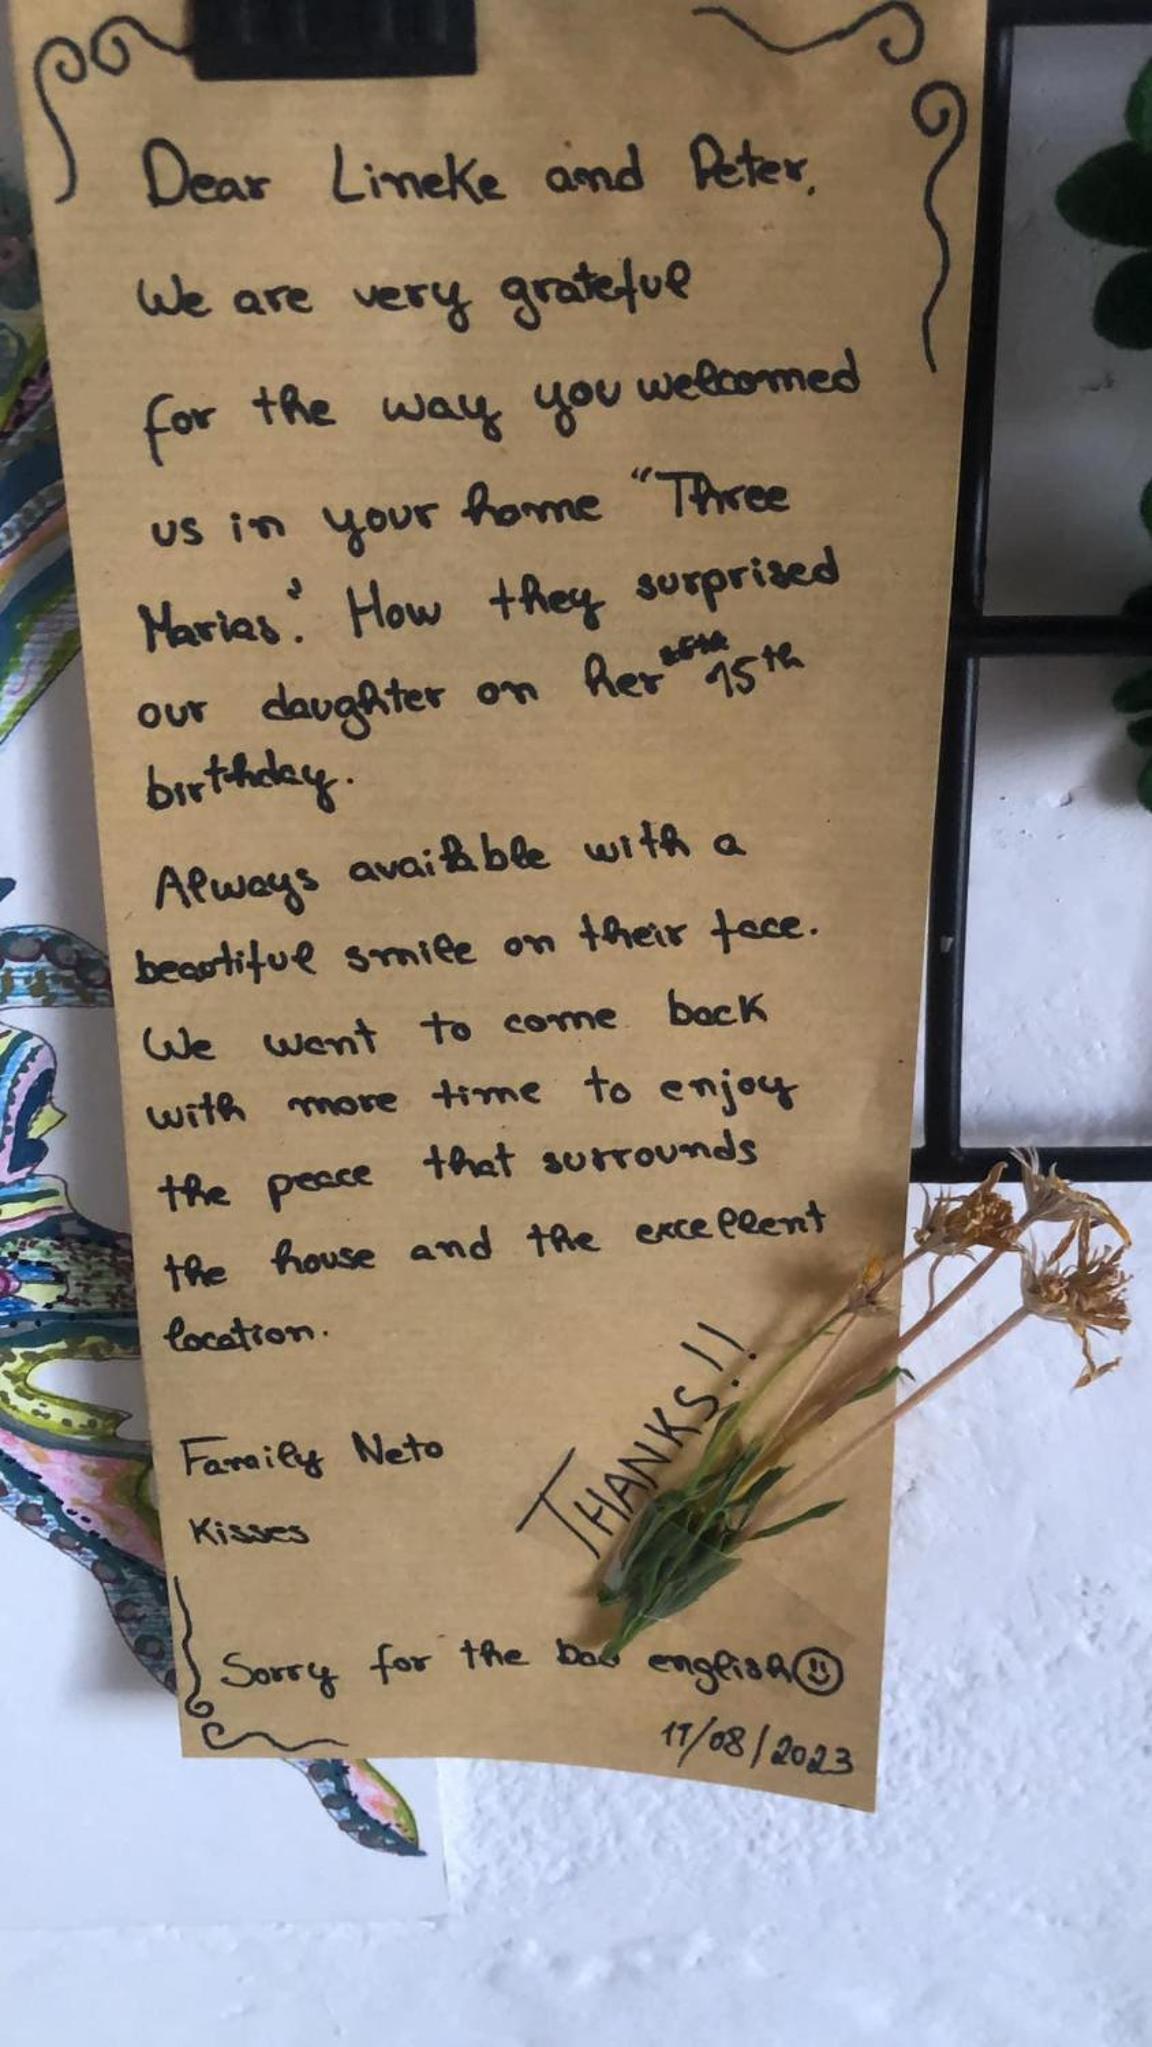 Dear Lineke and Peter,
We are very grateful
for the way you welcomed
us in your home "Three
Marias". How they surprised
our daughter on her 15th
birthday.
Always available with a
beautiful smile on their face.
We want to come back
with more time to enjoy
the peace that surrounds
the house and the excellent
location.
THANKS!!
Family Neto
Kisses
Sorry for the bad english